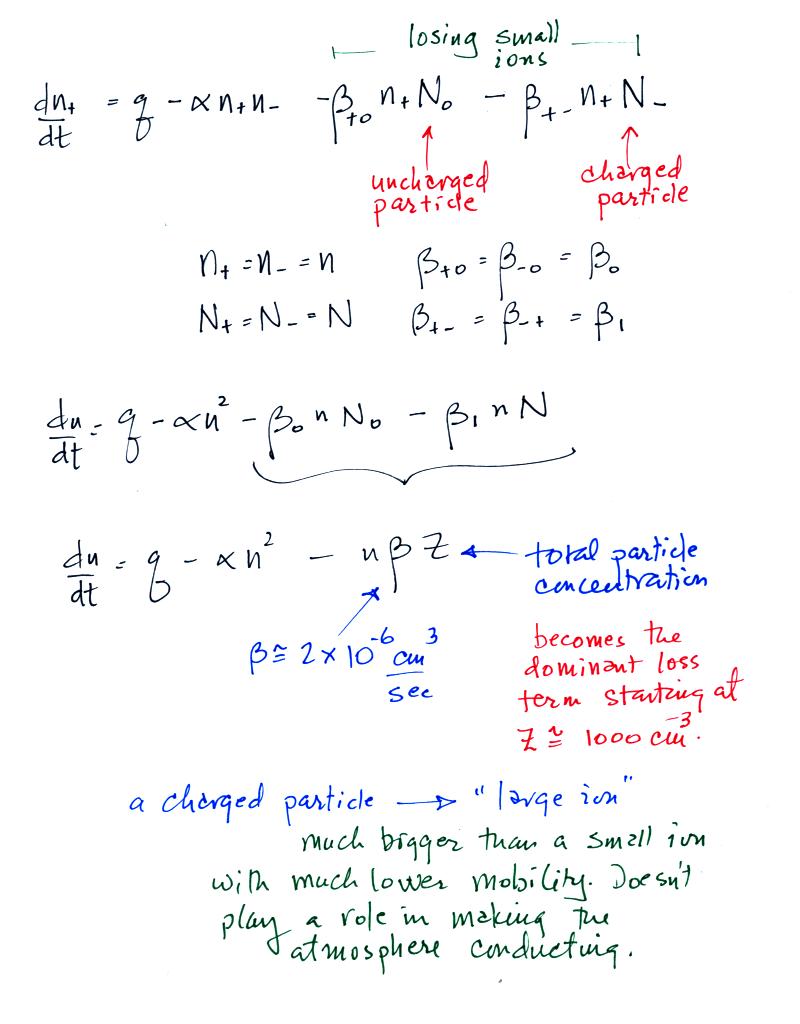 losing small
ions
dn₊/dt = q - αn₊n₋ - β₊₀ n₊N₀ - β₊₋ n₊N₋
uncharged
particle
charged
particle
n₊ = n₋ = n β₊₀ = β₋₀ = β₀
N₊ = N₋ = N β₊₋ = β₋₊ = β₁
dn/dt = q - αn² - β₀ n N₀ - β₁ n N
dn/dt = q - αn² - nβZ ← total particle
concentration
β ≅ 2 × 10⁻⁶ cm³/sec
becomes the
dominant loss
term starting at
Z ≅ 1000 cm⁻³.
a charged particle → "large ion"
much bigger than a small ion
with much lower mobility. Doesn't
play a role in making the
atmosphere conducting.